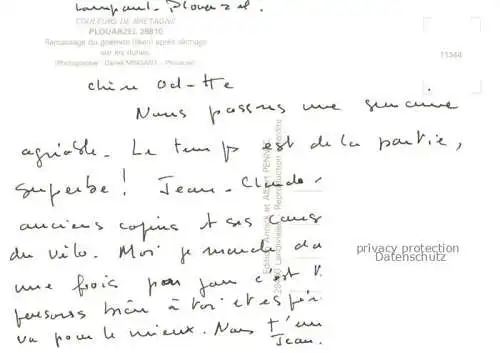 Lampaul-Plouarzel.
COULEURS DE BRETAGNE
PLOUARZEL 29810
Ramassage du goémon (lichen) après séchage
sur les dunes.
(Photographie : Daniel MINGANT - Plouarzel)
11344
chère Odette
Nous passons une semaine
agréable. Le temps est de la partie,
superbe ! Jean-Claude
anciens copins et ses
du vélo. Moi je marche
une fois par jour c'est
pensons bien à toi et
va pour le mieux. Nous t'em
Jean.
Edition Annick et Albert
Reproduction interdite
privacy protection
Datenschutz